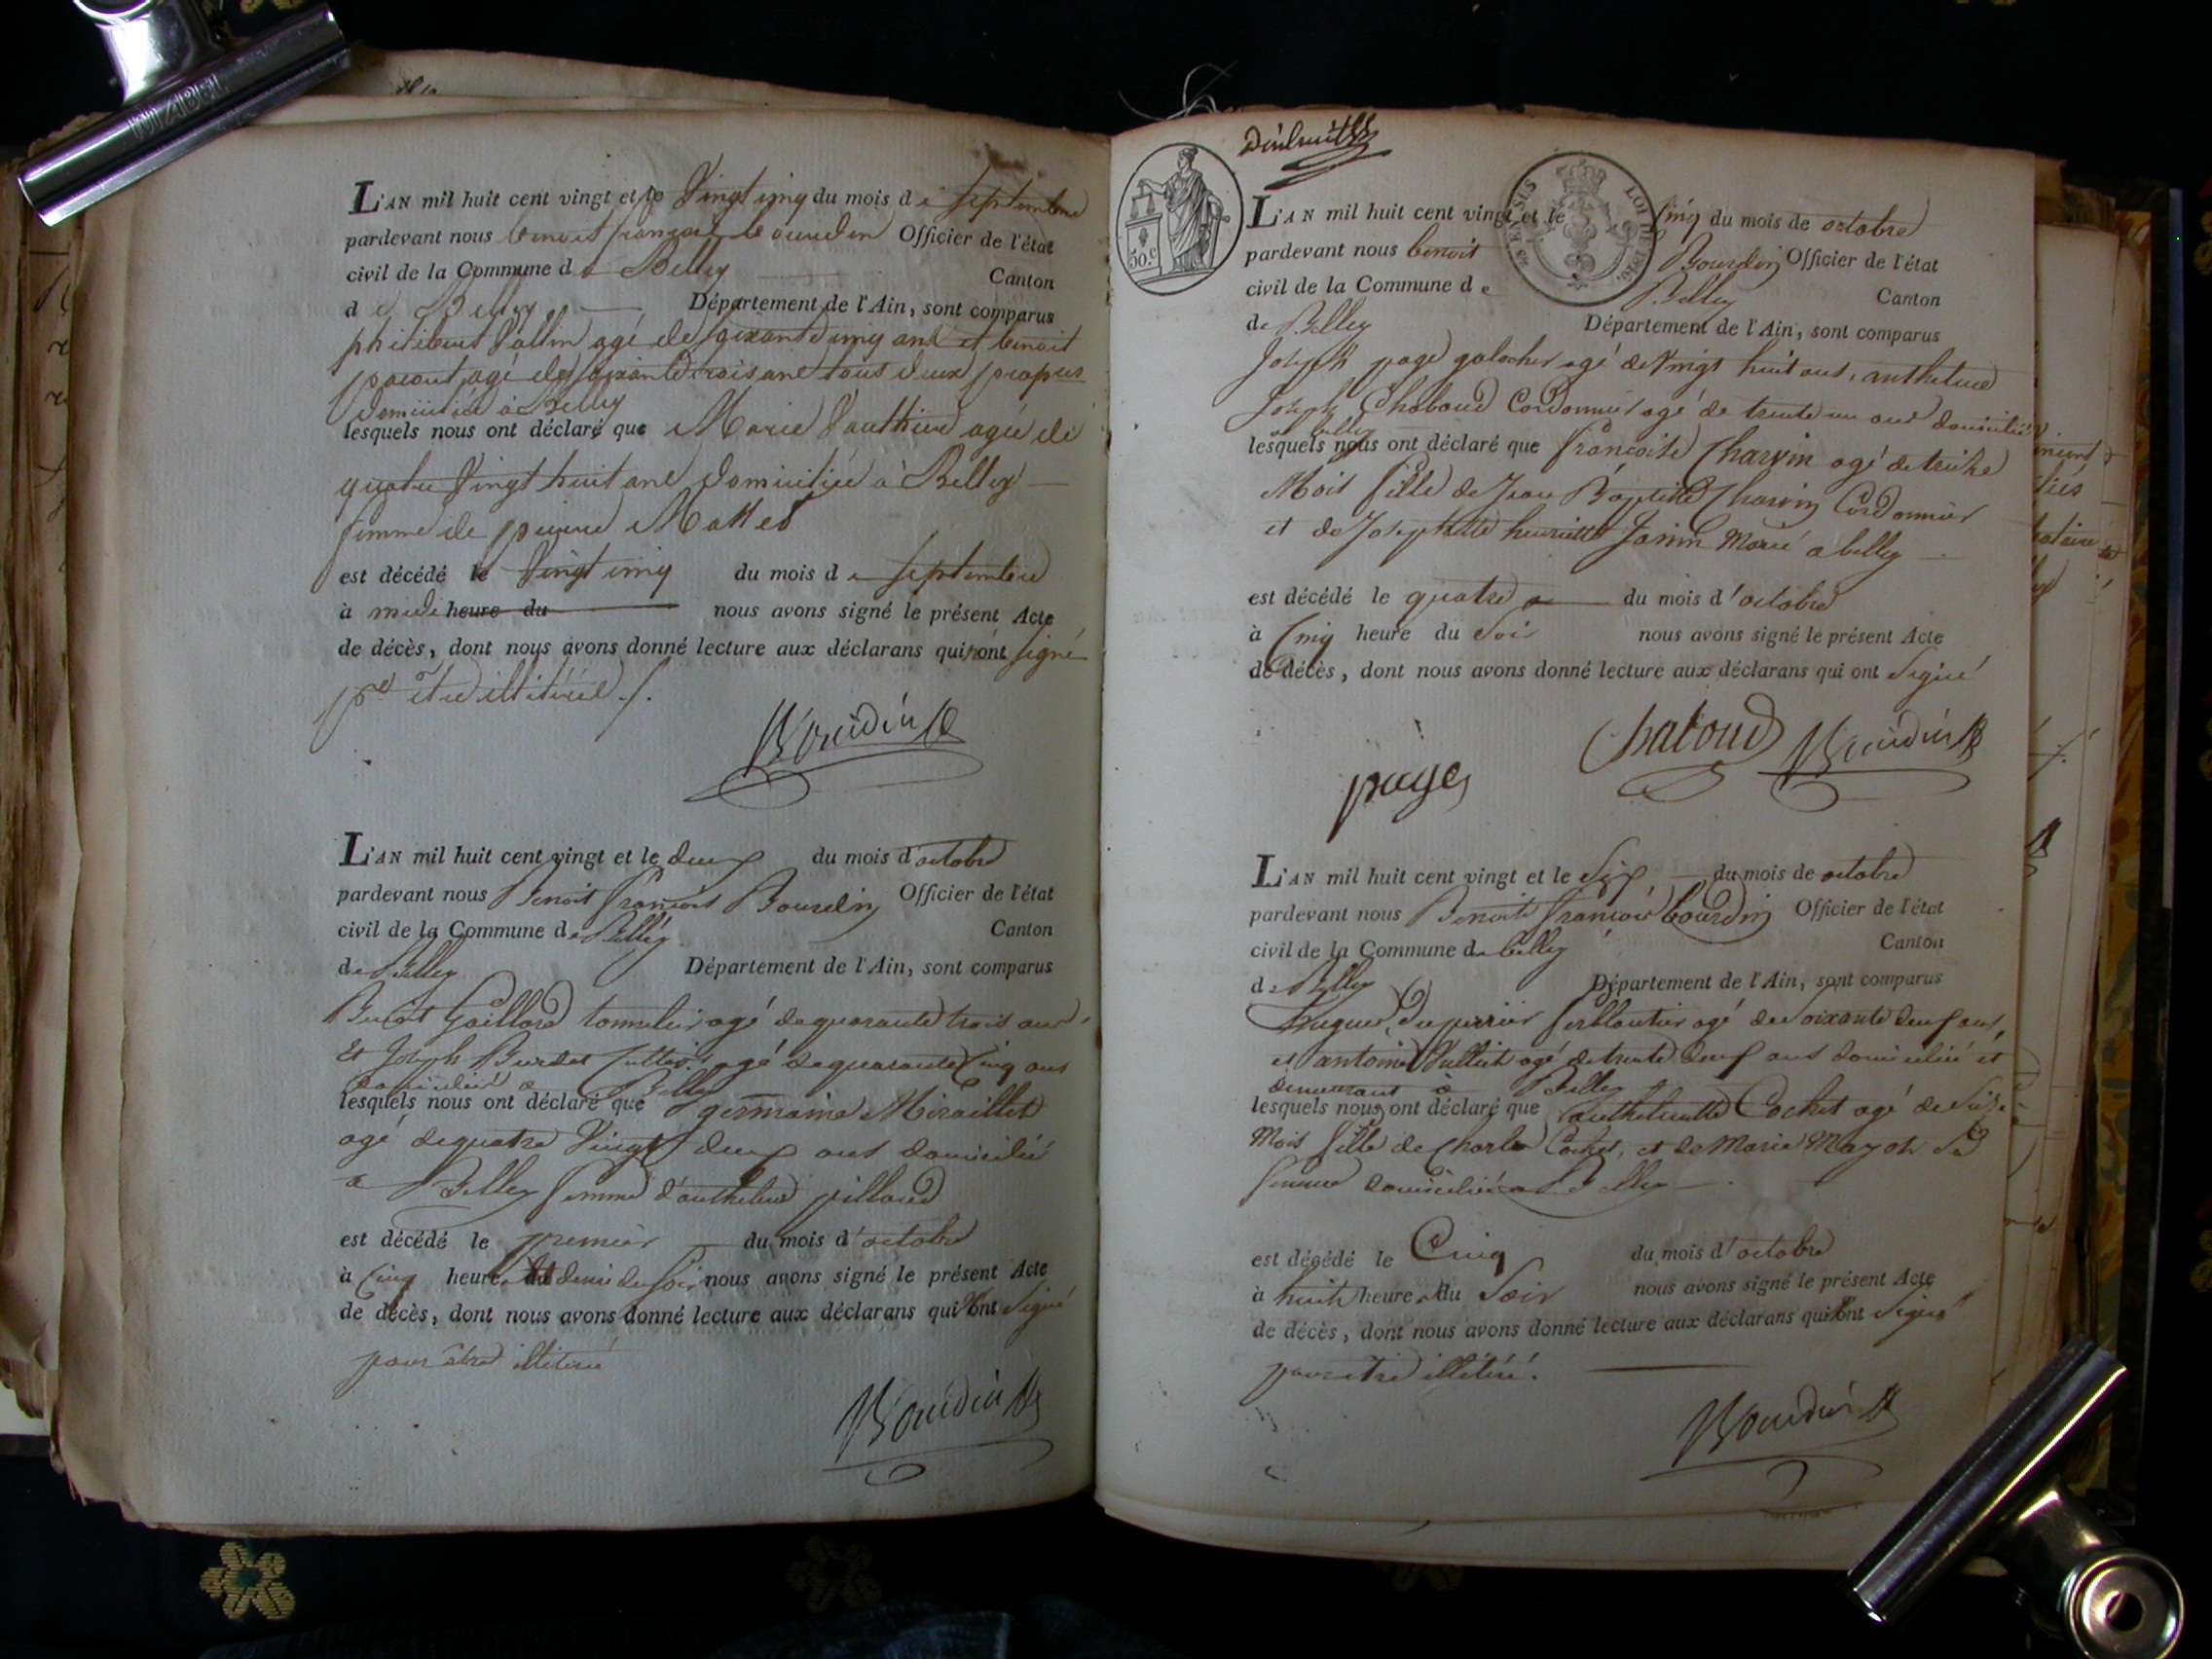 L'AN mil huit cent vingt et le Vingt cinq du mois de Septembre
pardevant nous benoit françois bourdin Officier de l'état
civil de la Commune de Belley Canton
de Belley Département de l'Ain, sont comparus
philibert Vallin agé de Soixante cinq ans et benoit
agé de Soixante trois ans tous deux
domiciliés à Belley
lesquels nous ont déclaré que Marie Gauthier agée de
quatre Vingt huit ans Domiciliée à Belley
femme de pierre
est décédé le Vingt cinq du mois de Septembre
à midi heure du nous avons signé le présent Acte
de décès, dont nous avons donné lecture aux déclarans qui n'ont signé
pr être illitérés ./.
Bourdin
L'AN mil huit cent vingt et le deux du mois d'octobre
pardevant nous Benoit François Bourdin Officier de l'état
civil de la Commune de Belley Canton
de Belley Département de l'Ain, sont comparus
Benoit Gaillard tonnelier agé de quarante trois ans,
Et Joseph Burdet agé de quarante Cinq ans
domiciliés a Belley
lesquels nous ont déclaré que germaine Miraillet
agé de quatre Vingt deux ans domicilié
a Belley femme d'anthelme pilloud
est décédé le premier du mois d'octobre
à Cinq heure et demie du Soir nous avons signé le présent Acte
de décès, dont nous avons donné lecture aux déclarans qui n'ont Signé
pour être illitéré
Bourdin
50.c
EN SUS
LOI DE 1816.
L'AN mil huit cent vingt et le Cinq du mois de octobre
pardevant nous benoit Bourdin Officier de l'état
civil de la Commune de Belley Canton
de Belley Département de l'Ain, sont comparus
Joseph page galocher agé de Vingt huit ans, anthelme
Joseph Chaboud Cordonnier agé de trente un ans domicilié
a belley
lesquels nous ont déclaré que françoise Charvin agé de treize
Mois fille de Jean Baptiste Charvin Cordonnier
et de Josephette henriette Janin Marié a belley
est décédé le quatre du mois d'octobre
à Cinq heure du Soir nous avons signé le présent Acte
de décès, dont nous avons donné lecture aux déclarans qui ont Signé
Chaboud Bourdin
page
L'AN mil huit cent vingt et le Six du mois de octobre
pardevant nous Benoit françois bourdin Officier de l'état
civil de la Commune de belley Canton
de Belley Département de l'Ain, sont comparus
hugues Duperrier ferblantier agé de Soixante deux ans,
et antoine Vulliet agé de trente deux ans domicilié et
demeurant à Belley
lesquels nous ont déclaré que anthelmette Cochet agé de Seize
Mois fille de Charles Cochet, et de Marie Sa
femme domicilié a Belley
est décédé le Cinq du mois d'octobre
à huit heure du Soir nous avons signé le présent Acte
de décès, dont nous avons donné lecture aux déclarans qui n'ont Signé
pour être illétéré.
Bourdin